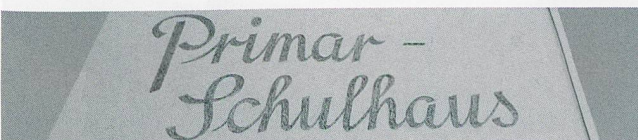 Primar -
Schulhaus